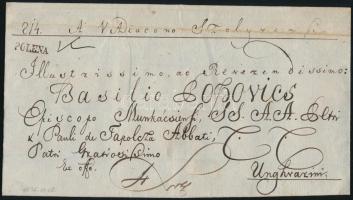 214. A VDiacono Szobran
POLENA
Illustrissimo, ac Reverendissimo:
Basilio POPOVICS
Episcopo Munkácsensi, SS. A.A. Petri
& Pauli de Tapolcza Abbati,
Patri Gratiosissimo
Ex offo.
Unghvarini.